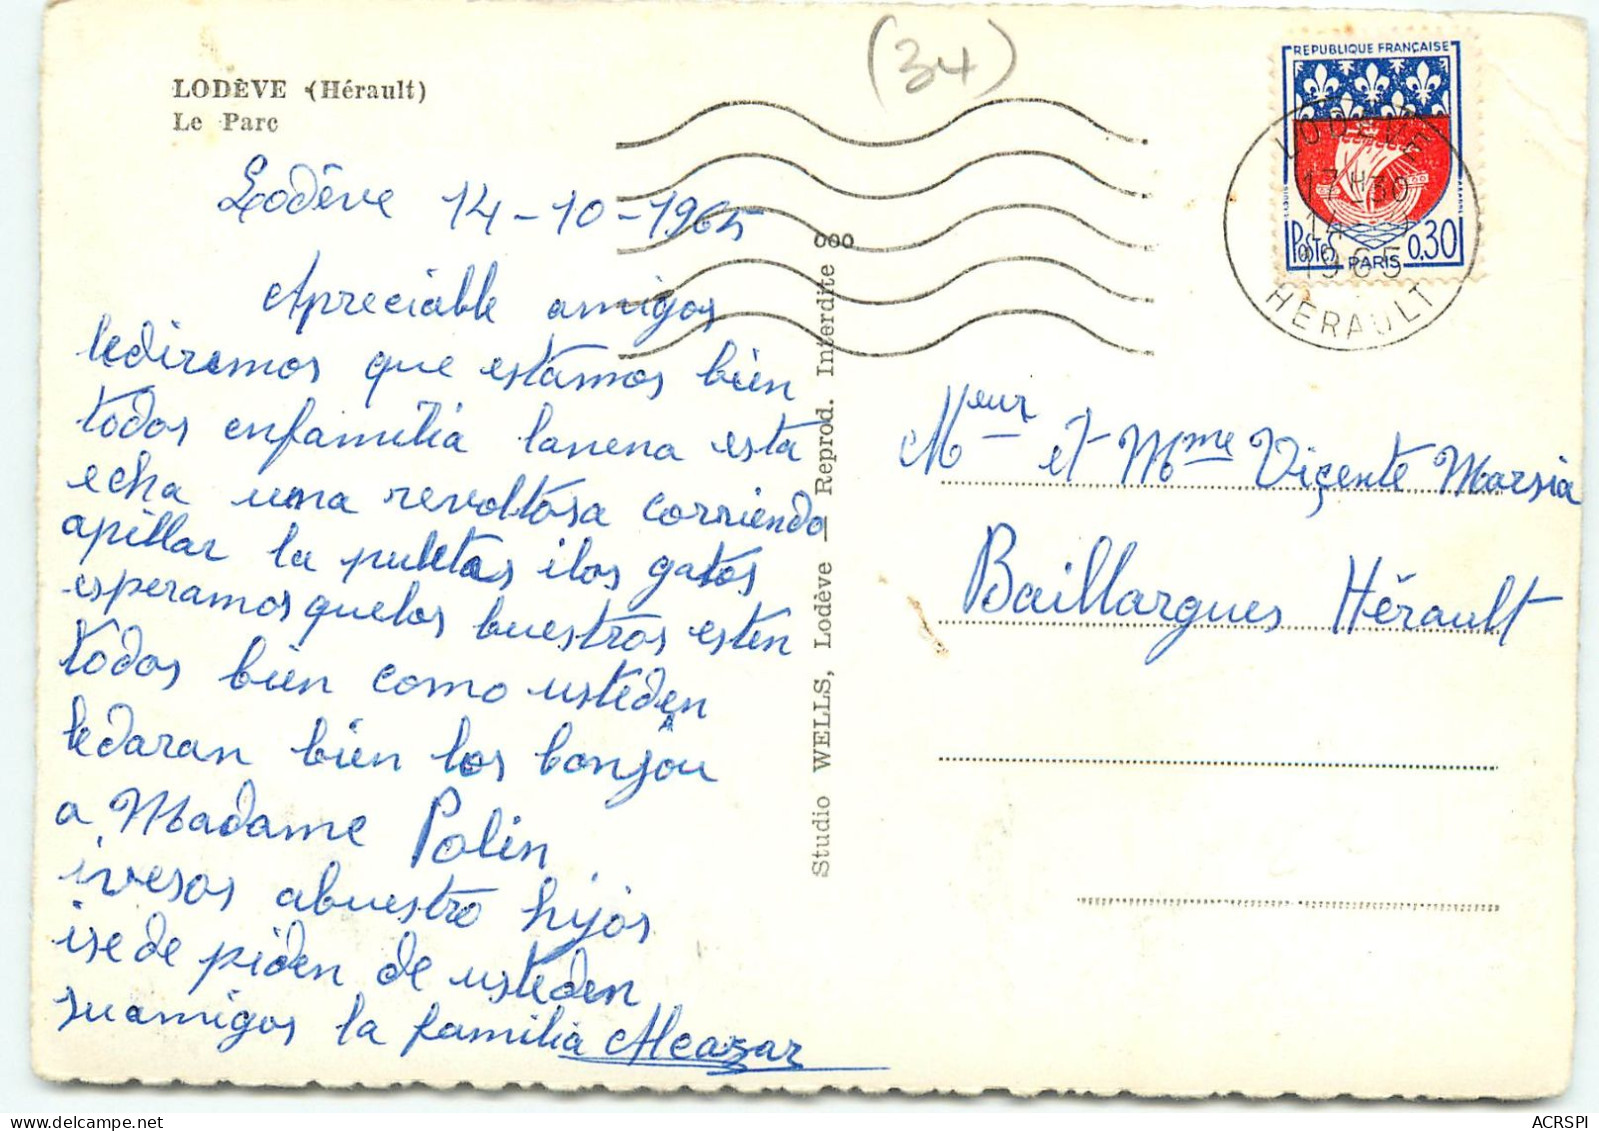 (34)
LODÈVE (Hérault)
Le Parc
REPUBLIQUE FRANÇAISE
POSTES PARIS 0,30
LODEVE
17H30
14-10
1965
HERAULT
Lodève 14-10-1965
Apreciable amigos
lediremos que estamos bien
todos enfamilia lanena esta
echa una revoltosa corriendo
apillar la pulletas ilos gatos
esperamos quelos buestros esten
todos bien como usteden
ledaran bien los bonjou
a Madame Polin
ivesos abuestro hijos
ise de piden de usteden
suamigos la familia Alcazar
Studio WELLS, Lodève — Reprod. Interdite 000
Meur et Mme Viçente Marsia
Baillargues Hérault
ACRSPI